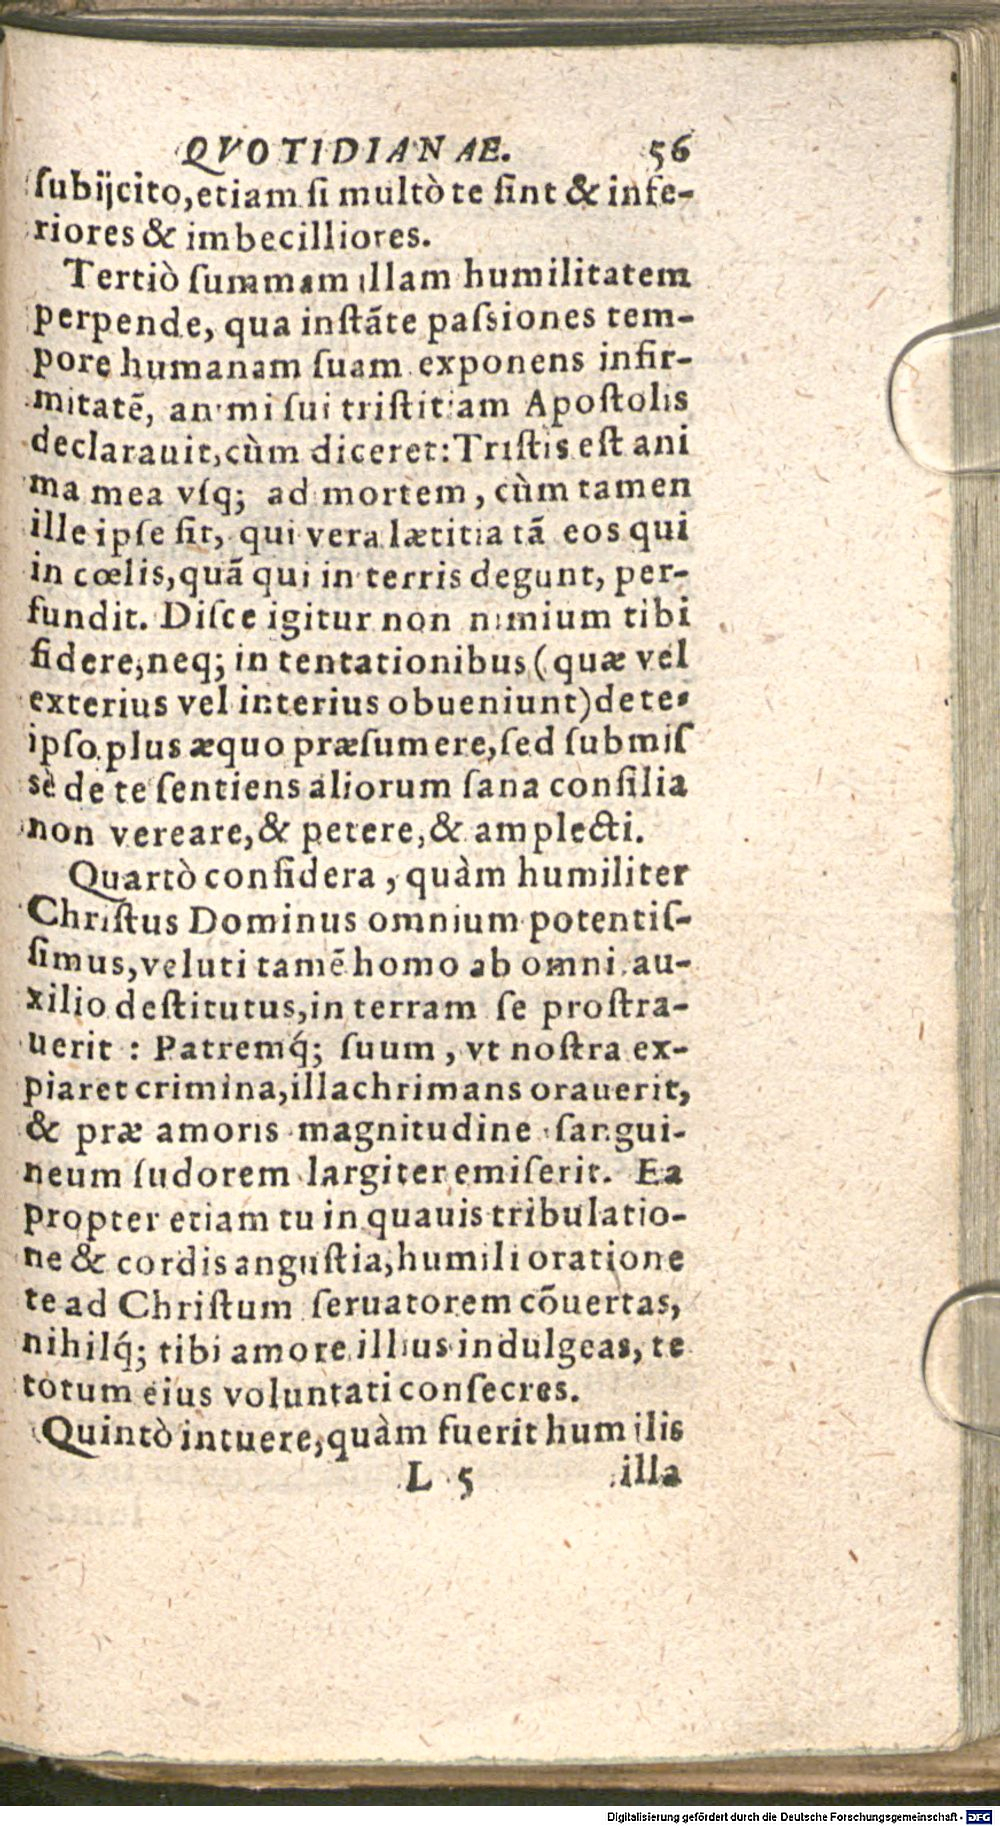 QVOTIDIANAE. 56
ſubijcito, etiam ſi multò te ſint & infe-
riores & imbecilliores.
Tertiò ſummam illam humilitatem
perpende, qua inſtāte paſsiones tem-
pore humanam ſuam exponens infir-
mitatē, animi ſui triſtitiam Apoſtolis
declarauit, cùm diceret: Triſtis eſt ani
ma mea vſq; ad mortem, cùm tamen
ille ipſe ſit, qui vera lætitia tā eos qui
in cœlis, quā qui in terris degunt, per-
fundit. Diſce igitur non nimium tibi
fidere, neq; in tentationibus (quæ vel
exterius vel interius obueniunt) de te-
ipſo plus æquo præſumere, ſed ſubmiſ
sè de te ſentiens aliorum ſana conſilia
non vereare, & petere, & amplecti.
Quartò conſidera, quàm humiliter
Chriſtus Dominus omnium potentiſ-
ſimus, veluti tamē homo ab omni au-
xilio deſtitutus, in terram ſe proſtra-
uerit : Patremq́; ſuum, vt noſtra ex-
piaret crimina, illachrimans orauerit,
& præ amoris magnitudine ſangui-
neum ſudorem largiter emiſerit. Ea
propter etiam tu in quauis tribulatio-
ne & cordis anguſtia, humili oratione
te ad Chriſtum ſeruatorem cōuertas,
nihilq́; tibi amore illius indulgeas, te
totum eius voluntati conſecres.
Quintò intuere, quàm fuerit humilis
L 5 illa
Digitalisierung gefördert durch die Deutsche Forschungsgemeinschaft - DFG